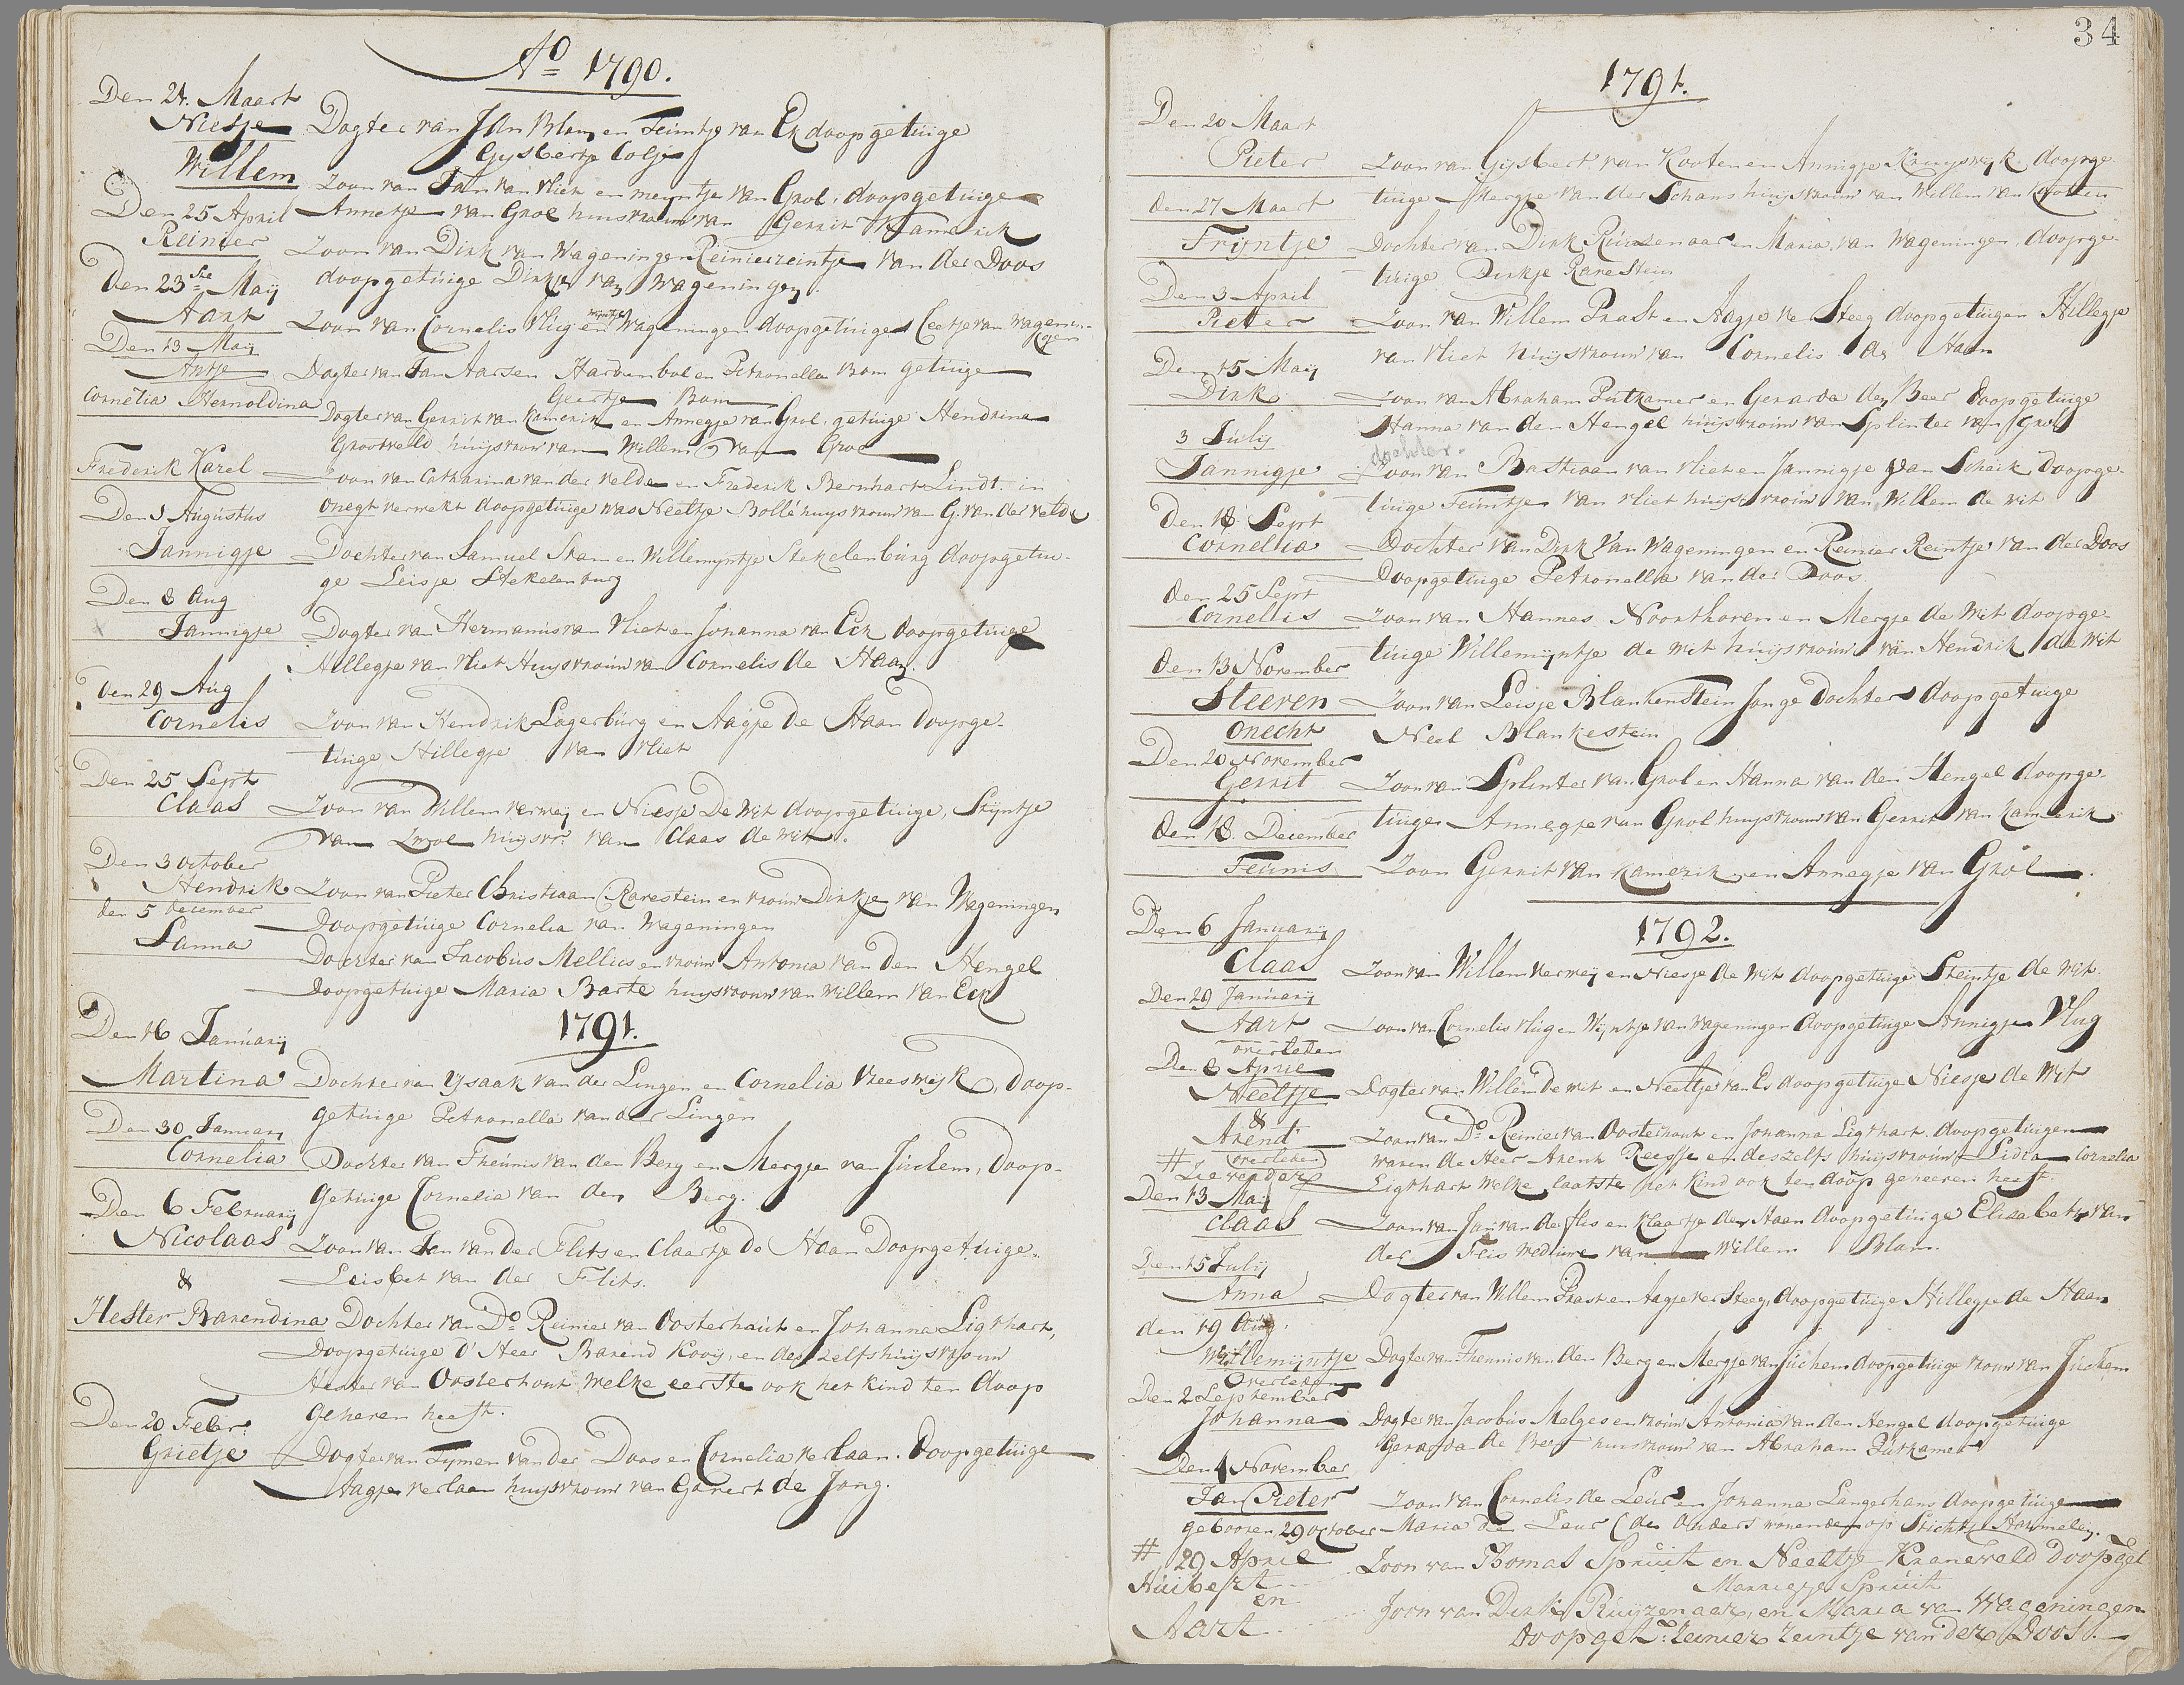 Ao 1790.
Den 21. Maart
Niesje Dogter van Jan Blam en Teuntje van Ek doopgetuige
Gysbertje Colje
Willem Zoon van Jan van Vliet en meyntje van Grol, doopgetuige
Annetje van Grol huisvrouw van Gerrit Kamerik
Den 25 April
Reinier Zoon van Dirk van Wageningen Reinierzeintje van der Doos
doopgetuige Dirkje van Wageningen.
Den 23ste Maij
Aart Zoon van Cornelis Vlug en Wijntje Wageningen doopgetuige Ceetje van Wagenin-
gen
Den 13 Maij
Antje Dogter van Jan Aarsen Hardenbol en Petronella Bom getuige
Geertje Bom
Cornelia Hernoldina Dogter van Gerrit van Kamerik en Annegje van Grol, getuige Hendrina
Grootveld huijsvrow van Willem van Grol
Frederik Karel Zoon van Catharina van der Velde en Frederik Bernhart Lindt. in
onegt verwekt doopgetuige was Neeltje Bollé huysvrouw van G. van der Velde
Den 1 Augustus
Jannigje Dochter van Samuel Stam en Willemyntje Stekelenburg doopgetui-
ge Leisje Stekelenburg
Den 8 Aug
Jannigje Dogter van Hermanus van Vliet en Johanna van Eck doopgetuige
Hillegje van Vliet Huysvrouw van Cornelis de Haan.
Den 29 Aug
Cornelis Zoon van Hendrik Lagerburg en Aagje de Haan doopge-
tuige Hillegje van Vliet
Den 25 Sept
Claas Zoon van Willem Verweij en Niesje De Wit doopgetuige, Stijntje
van Zwol huysvr: van Claas de Wit.
Den 3 october
Hendrik Zoon van Pieter Christiaan Ravestein en vrouw Dirkje van Wageningen
Doopgetuige Cornelia van Wageningen
den 5 december
Sanna Dochter van Jacobus Mellies en vrouw Antonia van den Hengel
Doopgetuige Maria Barte huysvrouw van Willem van Eck
1791.
Den 16 Januarij
Martina Dochter van Ysaak van der Lingen en Cornelia Vreeswijk, doop-
getuige Petronella van der Lingen
Den 30 Januarij
Cornelia Dochter van Theunis van den Berg en Mergje van Juchem, doop-
getuige Cornelia van den Berg.
Den 6 Februarij
Nicolaas Zoon van Jan van der Flits en Claartje de Haan Doopgetuige
Leisbet van der Flits.
&
Hester Barendina Dochter van Do Reinier van Oosterhout en Johanna Ligthart,
Doopgetuige d' Heer Barend Kooij, en deszelfs huysvrouw
Hester van Oosterhout welke eerste ook het kind ten doop
geheven heeft.
Den 20 Febr:
Grietje Dogter van Tymen van der Doos en Cornelia Verlaan. Doopgetuige
Aagje Verlaan huysvrouw van Gerrert de Jong.
34
1791.
Den 20 Maart
Pieter Zoon van Gijsbert van Kooten en Annigje Kruyswijk doopge-
tuige Mergje van der Schans huijsvrouw van Willem van Kooten
den 27 Maart
Trijntje Dochter van Dirk Ruizenaar en Maria van Wageningen, doopge-
tuige Dirkje Ravestein
Den 3 April
Pieter Zoon van Willem Prast en Aagje ver Steeg doopgetuigen Hillegje
van Vliet huijsvrouw van Cornelis de Haan
Den 15 Maij
Dirk Zoon van Abraham Putkamer en Gerarda de Beer doopgetuige
Hanna van den Hengel huijsvrouw van Splinter van Grol
3 Julij
dochter.
Jannigje Zoon van Bastiaan van Vliet en Jannigje van Schaik, doopge-
tuige Teuntje van Vliet huijsvrouw van Willem de Wit
Den 18 Sept
Cornellia Dochter van Dirk van Wageningen en Reinier Reintje van der Doos
Doopgetuige Petronella van der Doos.
den 25 Sept
Cornelis Zoon van Hannes Noorthoven en Mergje de Wit doopge-
tuige Willemijntje de Wit huijsvrouw van Hendrik de Wit
den 13 November
Steeven Zoon van Leisje Blankenstein Jonge dochter doopgetuige
onecht Neel Blankestein
Den 20 November
Gerrit Zoon van Splinter van Grol en Hanna van den Hengel doopge-
tuige Annegje van Grol huysvrouw van Gerrit van Kamerik
den 18. December
Teunis Zoon Gerrit van Kamerik en Annegje van Grol.
1792.
Den 6 Januarij
Claas Zoon van Willem Verweij en Niesje de Wit doopgetuige Steintje de Wit.
Den 29 Januarij
Aart Zoon van Cornelis Vlug en Wijntje van Wageningen doopgetuige Annigje Vlug
overleden
Den 8 April
Neeltje Dogter van Willem de Wit en Neeltje van Es doopgetuige Niesje de Wit
&
Arent Zoon van Do Reinier van Oosterhout en Johanna Ligthart. doopgetuigen
(overleden) waren de Heer Arent Reesse en deszelfs huijsvrouw Lidia Cornelia
# Zie verder Ligthart welke laatste het kind ook ten doop geheeven heeft.
Den 13 Maij
Claas Zoon van Jan van der Flis en Klaartje de Haan doopgetuige Elisabet van
der Flis weduwe van Willem Blam.
Den 15 Julij
Anna Dogter van Willem Prast en Aagje ver Steeg, doopgetuige Hillegje de Haan
den 19 Aug.
Willemijntje Dogter van Theunis van den Berg en Mergje van Juchem doopgetuige vrouw van Juchem
Overleden
Den 2 September
Johanna Dogter van Jacobus Melges en vrouw Antonia van den Hengel doopgetuige
Gerarda de Beer huisvrouw van Abraham Putkamer
Den 4 November
Jan Pieter Zoon van Cornelis de Leur en Johanna Langerhans doopgetuige
gebooren 29 october Maria de Leur (de Ouders wonende op Stichts Harmelen.
# 29 April Zoon van Thomas Spruit en Neeltje Kraneveld doopget
Huibert Marrigje Spruit
en
Aart Zoon van Dirk Ruijzenaar, en Maria van Wageningen
Doopget: Reinier Zeintje van der Doos.